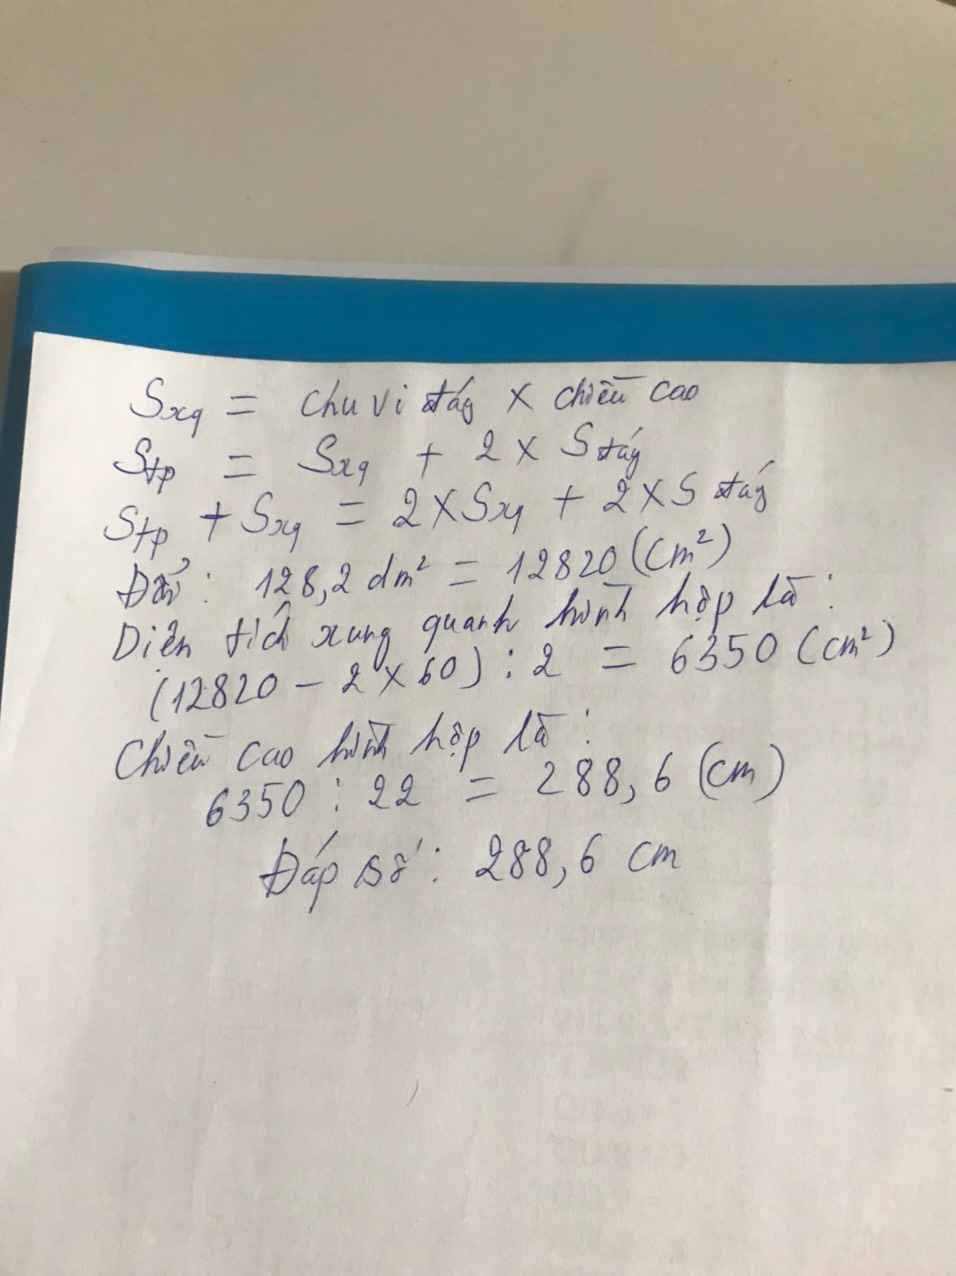 Sxq = chu vi đáy x chiều cao
Stp = Sxq + 2 x S đáy
Stp + Sxq = 2 x Sxq + 2 x S đáy
Đổi: 128,2 dm² = 12820 (cm²)
Diện tích xung quanh hình hộp là:
(12820 - 2 x 60) : 2 = 6350 (cm²)
Chiều cao hình hộp là:
6350 : 22 = 288,6 (cm)
Đáp số: 288,6 cm